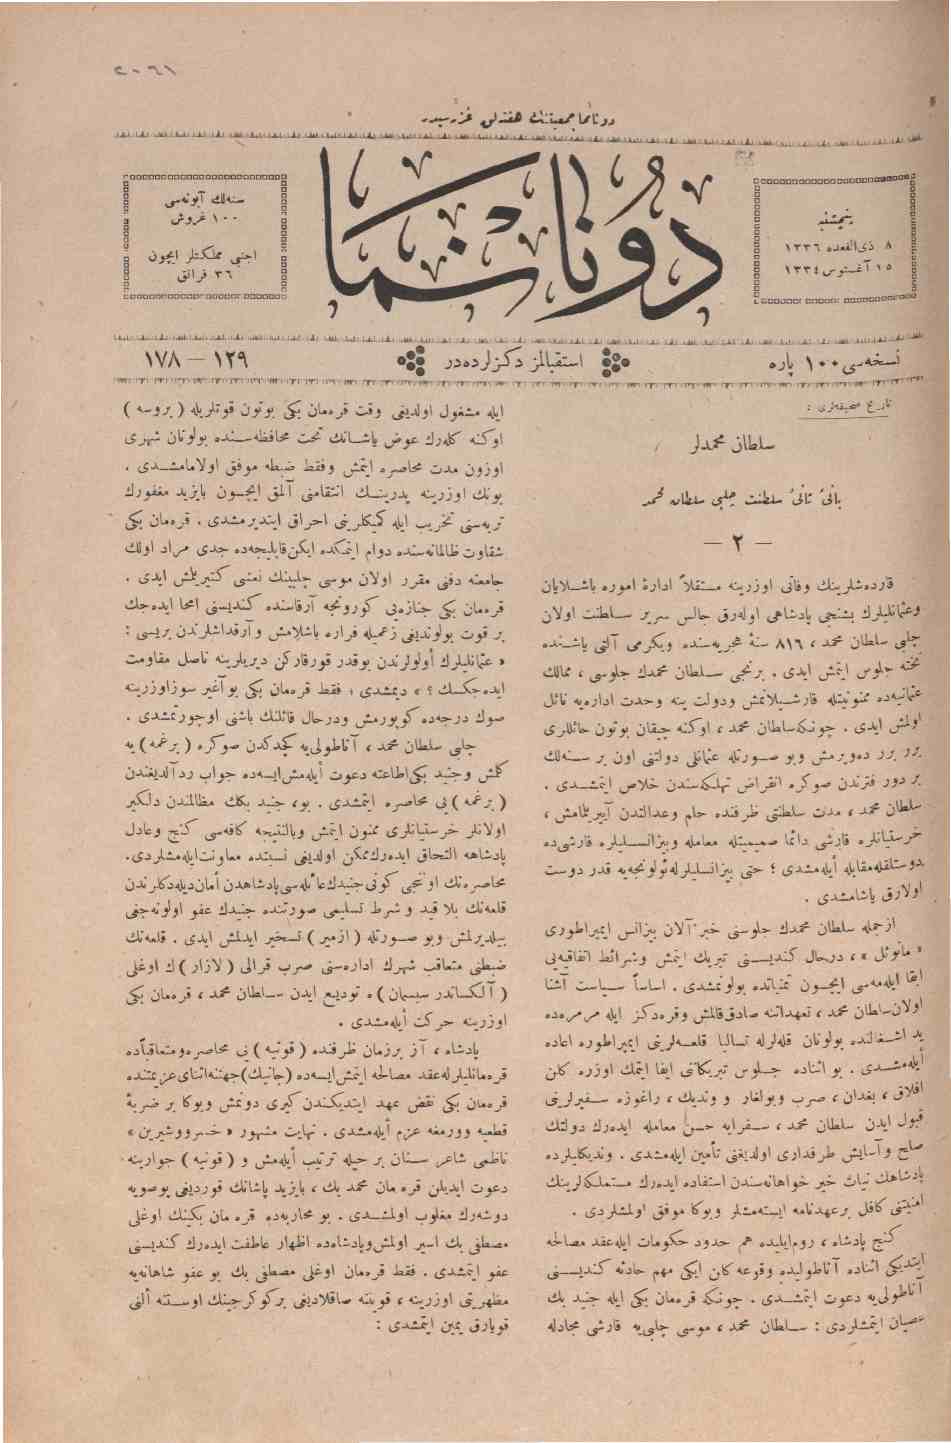 ٢٠٦١
دونانما جمعیتنك هفته‌لق غزته‌سیدر
پنجشنبه
٨ ذی‌القعده ١٣٣٦
١٥ آغستوس ١٣٣٤
دونانما
سنه‌لك آبونه‌سی
١٠٠ غروش
اجنبی مملكتلر ایچون
٣٦ فرانق
نسخه‌سی ١٠٠ پاره
استقبالمز دكزلرده‌در
١٢٩ — ١٧٨
تاریخ صحیفه‌لری :
سلطان محمدلر
بانئ ثانئ سلطنت چلبی سلطان محمد
— ٢ —
قارده‌شلرینك وفاتی اوزرینه مستقلاً ادارۀ اموره باشلایان
وعثمانلیلرك بشنجی پادشاهی اوله‌رق جالس سریر سلطنت اولان
چلبی سلطان محمد ، ٨١٦ سنۀ هجریه‌سنده ویكرمی آلتی یاشنده
تخته جلوس ایتمش ایدی . برنجی سلطان محمدك جلوسی ، ممالك
عثمانیه‌ده ممنونیتله قارشیلانمش ودولت ینه وحدت اداره‌یه نائل
اولمش ایدی . چونكه سلطان محمد ، اوكنه چیقان بوتون حائللری
برر برر ده‌ویرمش وبو صورتله عثمانلی دولتنی اون بر سنه‌لك
بر دور فترتدن صوكره انقراض تهلكه‌سندن خلاص ایتمشدی .
سلطان محمد ، مدت سلطنتی ظرفنده حلم وعدالتدن آیریلمامش ،
خرستیانلره قارشی دائما صمیمیتله معامله وبیزانسلیلره قارشی‌ده
دوستلقله مقابله أیله‌مشدی ؛ حتی بیزانسلیلرله ئولونجه‌یه قدر دوست
اولارق یاشامشدی .
ازجمله سلطان محمدك جلوسنی خبر آلان بیزانس ایمپراطوری
« مانوئل » ، درحال كندیسنی تبریك ایتمش وشرائط اتفاقیه‌یی
ایفا ایله‌مه‌سی ایچون تمنیاتده بولونمشدی . اساساً سیاست آشنا
اولان سلطان محمد ، تعهداتنه صادق قالمش وقره‌دكز ایله مرمره‌ده
ید اشغالنده بولونان قله‌لرله تسالیا قلعه‌لرینی ایمپراطوره اعاده
أیله‌مشدی . بو اثناده جلوس تبریكاتنی ایفا ایتمك اوزره كلن
افلاق ، بغدان ، صرب وبولغار و وندیك ، راغوزه سفیرلرینی
قبول ایدن سلطان محمد ، سفرایه حسن معامله ایده‌رك دولتك
صلح وآسایش طرفداری اولدیغنی تأمین ایله‌مشدی . وندیكلیلرده
پادشاهك نیات خیر خواهانه‌سندن استفاده ایده‌رك مستملكه‌لرینك
امنیتنی كافل برعهدنامه ایسته‌مشلر وبوكا موفق اولمشلردی .
كنج پادشاه ، روم‌ایلیده هم حدود حكومات ایله عقد مصالحه
ایتدیكی اثناده آناطولیده وقوعه كلن ایكی مهم حادثه كندیسنی
آناطولی‌یه دعوت ایتمشدی . چونكه قره‌مان بكی ایله جنید بك
عصیان ایتمشلردی : سلطان محمد ، موسی چلبی‌یه قارشی مجادله
ایله مشغول اولدیغی وقت قره‌مان بكی بوتون قوتلریله ( بروسه )
اوكنه كله‌رك عوض پاشانك تحت محافظه‌سنده بولونان شهری
اوزون مدت محاصره ایتمش وفقط ضبطه موفق اولامامشدی .
بونك اوزرینه پدرینك انتقامنی آلمق ایچون بایزید مغفورك
تربه‌سنی تخریب ایله كمیكلرینی احراق ایتدیرمشدی . قره‌مان بكی
شقاوت ظالمانه‌سنده دوام ایتمكده ایكن قاپلیجه‌ده جدی مراد اولك
جامعنه دفنی مقرر اولان موسی چلبینك نعشی كتیریلمش ایدی .
قره‌مان بكی جنازه‌یی كورونجه آرقاسنده كندیسنی امحا ایده‌جك
بر قوت بولوندیغی زعمیله فراره باشلامش وآرقداشلرندن بریسی :
« عثمانلیلرك أولولرندن بوقدر قورقاركن دیریلرینه ناصل مقاومت
ایده‌جكسك ؟ » دیمشدی ؛ فقط قره‌مان بكی بو آغیر سوز اوزرینه
صوك درجه‌ده كوپورمش ودرحال قائلنك باشنی اوچورتمشدی .
چلبی سلطان محمد ، آناطولی‌یه كچدكدن صوكره ( برغمه ) یه
كلمش وجنید بكی اطاعته دعوت أیله‌مش ایسه‌ده جواب رد آلدیغندن
( برغمه ) یی محاصره ایتمشدی . بو ، جنید بكك مظالمندن دلكیر
اولانلر خرستیانلری ممنون ایتمش وبالنتیجه كافه‌سی كنج وعادل
پادشاهه التحاق ایده‌رك ممكن اولدیغی نسبتده معاونت ایله‌مشلردی .
محاصره‌نك اوننجی كونی جنیدك عائله‌سی پادشاهدن أمان دیله‌دكلرندن
قلعه‌نك بلا قید و شرط تسلیمی صورتنده جنیدك عفو اولونه‌جغی
بیلدیرلمش وبو صورتله ( ازمیر ) تسخیر ایدلمش ایدی . قلعه‌نك
ضبطنی متعاقب شهرك اداره‌سنی صرب قرالی ( لازار ) ك اوغلی
( آلكساندر سیسمان ) ه تودیع ایدن سلطان محمد ، قره‌مان بكی
اوزرینه حركت أیله‌مشدی .
پادشاه ، آز برزمان ظرفنده ( قونیه ) یی محاصره ومتعاقباًده
قره‌مانلیلرله عقد مصالحه ایتمش ایسه‌ده ( جانیك ) جهتنه اثنای عزیمتنده
قره‌مان بكی نقض عهد ایتدیكندن كیری دونمش وبوكا بر ضربۀ
قطعیه وورمغه عزم أیله‌مشدی . نهایت مشهور « خسرووشیرین »
ناظمی شاعر سنان بر حیله ترتیب أیله‌مش و ( قونیه ) جوارینه
دعوت ایدیلن قره مان محمد بك ، بایزید پاشانك قوردیغی پوصویه
دوشه‌رك مغلوب اولمشدی . بو محاربه‌ده قره مان بكینك اوغلی
مصطفی بك اسیر اولمش وپادشاه‌ده اظهار عاطفت ایده‌رك كندیسنی
عفو ایتمشدی . فقط قره‌مان اوغلی مصطفی بك بو عفو شاهانه‌یه
مظهریتی اوزرینه ، قوینه صاقلادیغی بركوكرجینك اوستنه ألنی
قویارق یمین ایتمشدی :